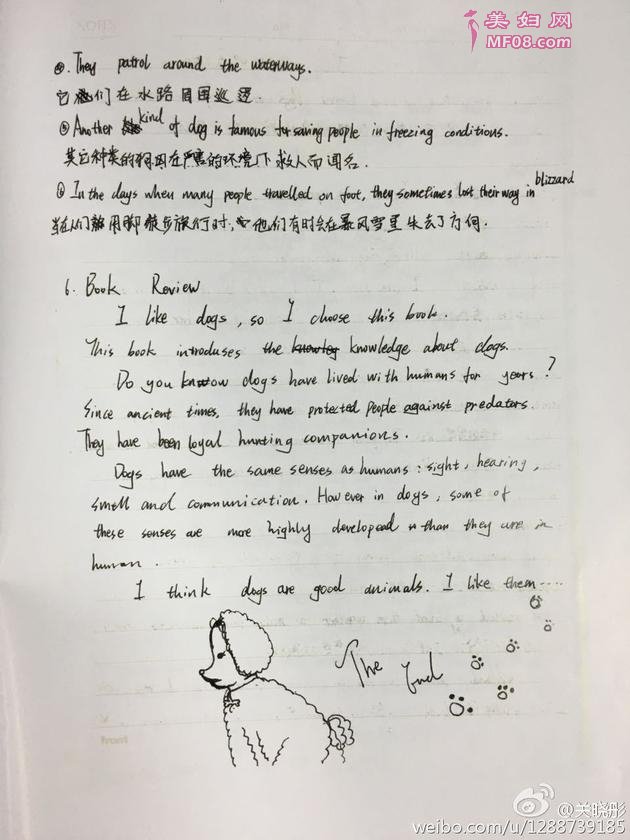 美妇网
MF08.com
④. They patrol around the waterways.
它们在水路周围巡逻.
⑤ Another kind of dog is famous for saving people in freezing conditions.
其它种类的狗因在严寒的环境下救人而闻名.
⑥ In the days when many people travelled on foot, they sometimes lost their way in blizzard
当在人们用脚徒步旅行时, 他们有时会在暴风雪里失去了方向.
6. Book Review
I like dogs, so I choose this book.
This book introduses the knowledge about dogs.
Do you know dogs have lived with humans for years?
Since ancient times, they have protected people against predators.
They have been loyal hunting companions.
Dogs have the same senses as humans: sight, hearing,
smell and communication. However in dogs, some of
these senses are more highly developed than they are in
human.
I think dogs are good animals. I like them....
The End
front
@关晓彤
weibo.com/u/1288739185